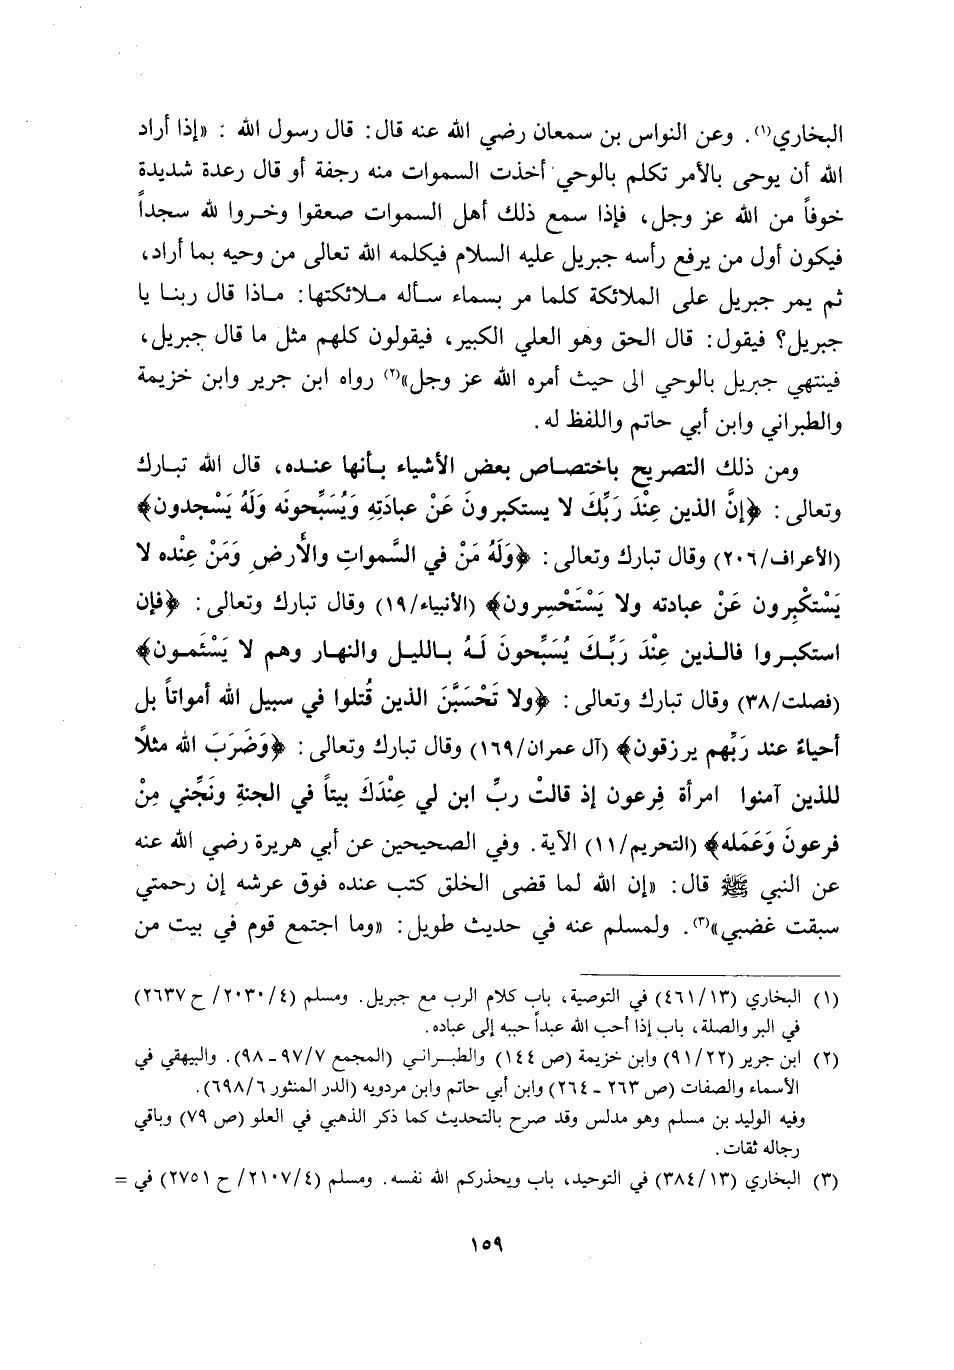 البخاري(١). وعن النواس بن سمعان رضي الله عنه قال: قال رسول الله : «إذا أراد
الله أن يوحى بالأمر تكلم بالوحي أخذت السموات منه رجفة أو قال رعدة شديدة
خوفاً من الله عز وجل، فإذا سمع ذلك أهل السموات صعقوا وخروا لله سجداً
فيكون أول من يرفع رأسه جبريل عليه السلام فيكلمه الله تعالى من وحيه بما أراد،
ثم يمر جبريل على الملائكة كلما مر بسماء سأله ملائكتها: ماذا قال ربنا يا
جبريل؟ فيقول: قال الحق وهو العلي الكبير، فيقولون كلهم مثل ما قال جبريل،
فينتهي جبريل بالوحي الى حيث أمره الله عز وجل»(٢) رواه ابن جرير وابن خزيمة
والطبراني وابن أبي حاتم واللفظ له.
ومن ذلك التصريح باختصاص بعض الأشياء بأنها عنده، قال الله تبارك
وتعالى: ﴿إنَّ الذين عِنْدَ رَبِّكَ لا يستكبرونَ عَنْ عبادَتِهِ وَيُسَبِّحونَه وَلَهُ يَسْجدون﴾
(الأعراف/٢٠٦) وقال تبارك وتعالى: ﴿وَلَهُ مَنْ في السَّمواتِ والأَرضِ وَمَنْ عِنْده لا
يَسْتكْبِرون عَنْ عبادته ولا يَسْتَحْسِرون﴾ (الأنبياء/١٩) وقال تبارك وتعالى: ﴿فإن
استكبروا فالذين عِنْدَ رَبِّكَ يُسَبِّحونَ لَهُ بالليل والنهار وهم لا يَسْئَمون﴾
(فصلت/٣٨) وقال تبارك وتعالى: ﴿ولا تَحْسَبَّنَ الذين قُتلوا في سبيل الله أمواتاً بل
أحياءٌ عند رَبِّهم يرزقون﴾ (آل عمران/١٦٩) وقال تبارك وتعالى: ﴿وَضَرَبَ الله مثلاً
للذين آمنوا امرأة فِرعون إذ قالتْ ربِّ ابن لي عِنْدَكَ بيتاً في الجنةِ ونَجِّني مِنْ
فرعونَ وَعَمَله﴾ (التحريم/١١) الآية. وفي الصحيحين عن أبي هريرة رضي الله عنه
عن النبي ﷺ قال: «إن الله لما قضى الخلق كتب عنده فوق عرشه إن رحمتي
سبقت غضبي»(٣). ولمسلم عنه في حديث طويل: «وما اجتمع قوم في بيت من
(١) البخاري (٤٦١/١٣) في التوصية، باب كلام الرب مع جبريل. ومسلم (٢٠٣٠/٤/ ح ٢٦٣٧)
في البر والصلة، باب إذا أحب الله عبداً حببه إلى عباده.
(٢) ابن جرير (٩١/٢٢) وابن خزيمة (ص ١٤٤) والطبراني (المجمع ٩٧/٧ - ٩٨). والبيهقي في
الأسماء والصفات (ص ٢٦٣ - ٢٦٤) وابن أبي حاتم وابن مردويه (الدر المنثور ٦٩٨/٦).
وفيه الوليد بن مسلم وهو مدلس وقد صرح بالتحديث كما ذكر الذهبي في العلو (ص ٧٩) وباقي
رجاله ثقات.
(٣) البخاري (٣٨٤/١٣) في التوحيد، باب ويحذركم الله نفسه. ومسلم (٢١٠٧/٤/ ح ٢٧٥١) في =
١٥٩